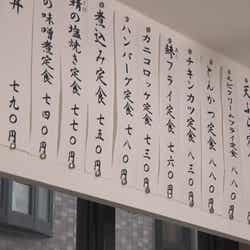 天
エビクリームフライ定食 八八〇円
とんかつ定食 八八〇円
チキンカツ定食 八三〇円
鉢フライ定食 七六〇円
カニコロッケ定食 七三〇円
ハンバーグ定食 八八〇円
煮込み定食 七五〇円
の塩焼き定食 七七〇円
の味噌煮定食 七四〇円
丼 七九〇円